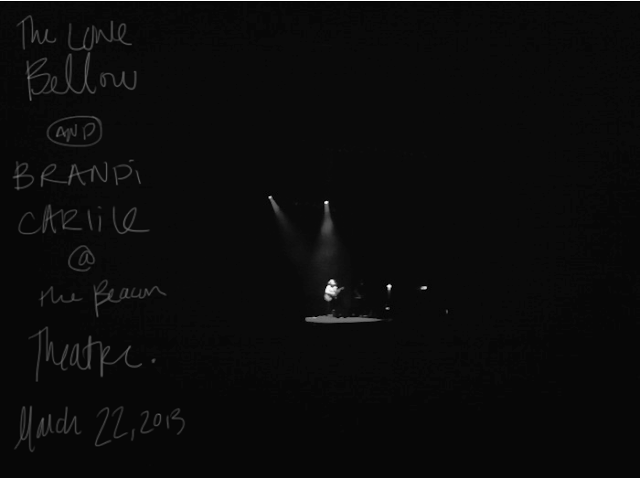 The Lone
Bellow
AND
BRANDi
CARlile
@
the Beacon
Theatre.
March 22, 2013